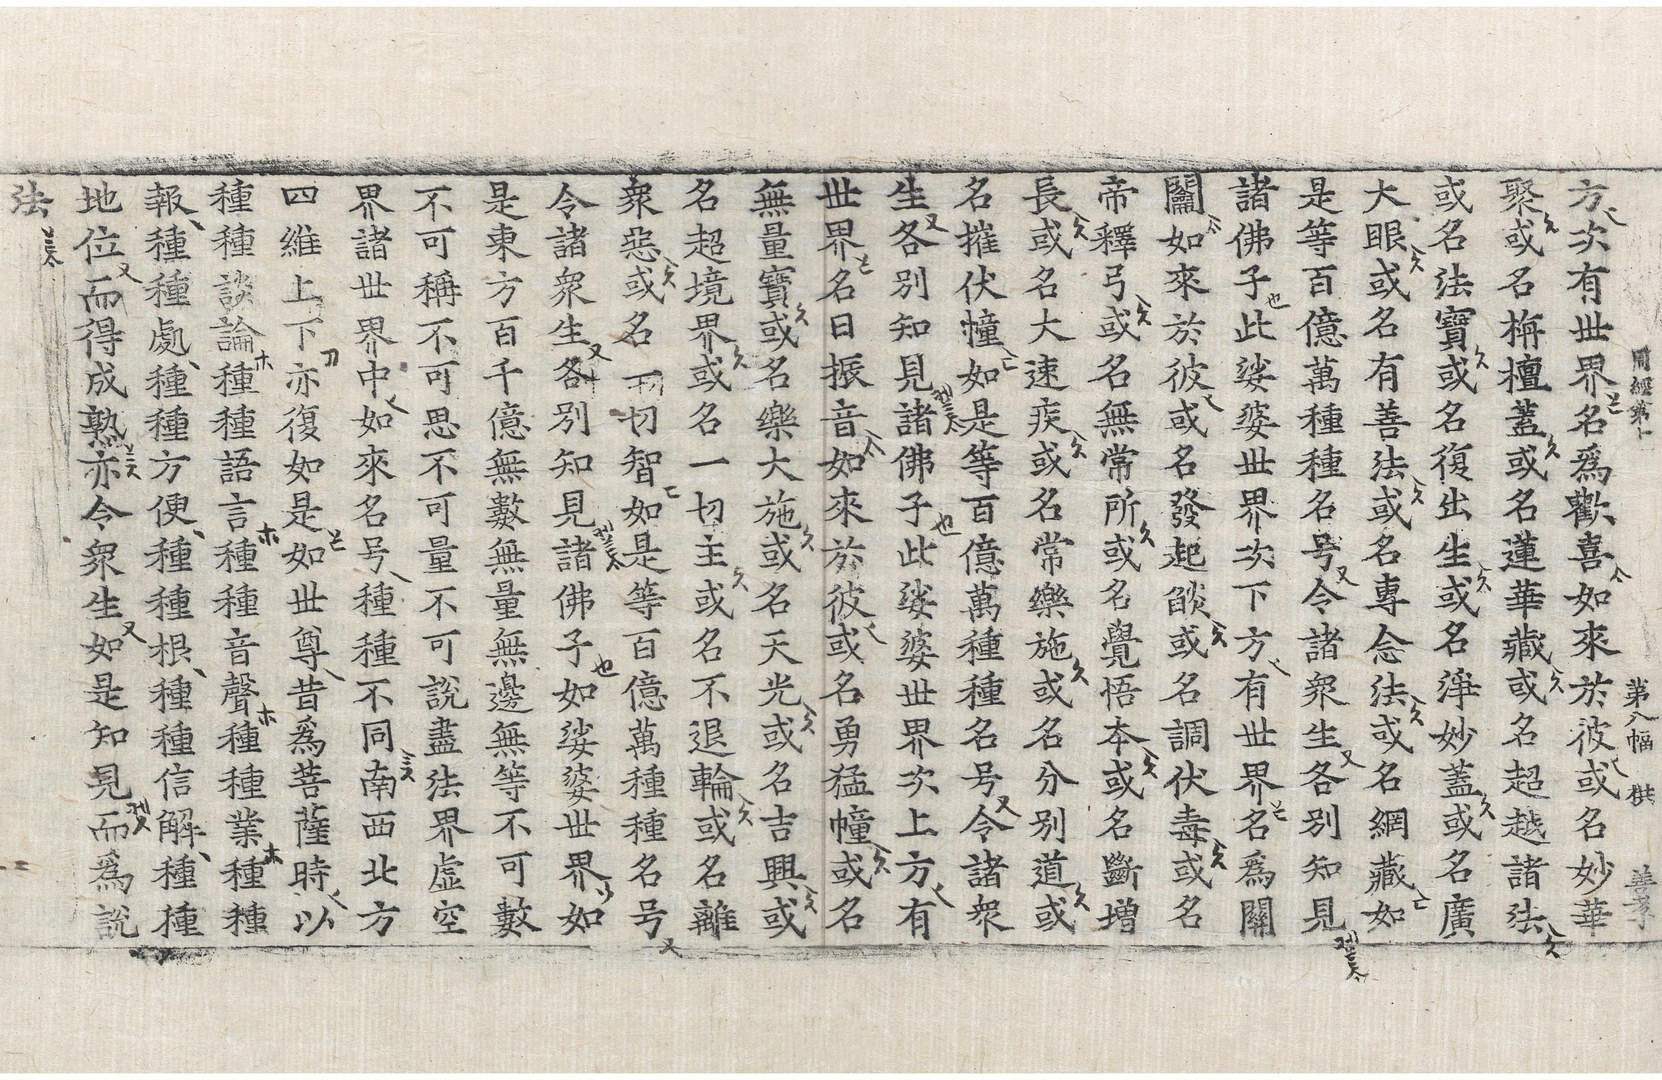 周經第十 第八幅 供 善孝
方次有世界名爲歡喜如來於彼或名妙華
聚或名栴檀蓋或名蓮華藏或名超越諸法
或名法寶或名復出生或名淨妙蓋或名廣
大眼或名有善法或名專念法或名網藏如
是等百億萬種種名号令諸衆生各別知見
諸佛子此娑婆世界次下方有世界名爲關
𨷲如來於彼或名發起焰或名調伏毒或名
帝釋弓或名無常所或名覺悟本或名斷增
長或名大速疾或名常樂施或名分別道或
名摧伏幢如是等百億萬種種名号令諸衆
生各別知見諸佛子此娑婆世界次上方有
世界名曰振音如來於彼或名勇猛幢或名
無量寶或名樂大施或名天光或名吉興或
名超境界或名一切主或名不退輪或名離
衆惡或名一切智如是等百億萬種種名号
令諸衆生各別知見諸佛子如娑婆世界如
是東方百千億無數無量無邊無等不可數
不可稱不可思不可量不可說盡法界虛空
界諸世界中如來名号種種不同南西北方
四維上下亦復如是如世尊昔爲菩薩時以
種種談論種種語言種種音聲種種業種種
報種種處種種方便種種根種種信解種種
地位而得成熟亦令衆生如是知見而爲說
法